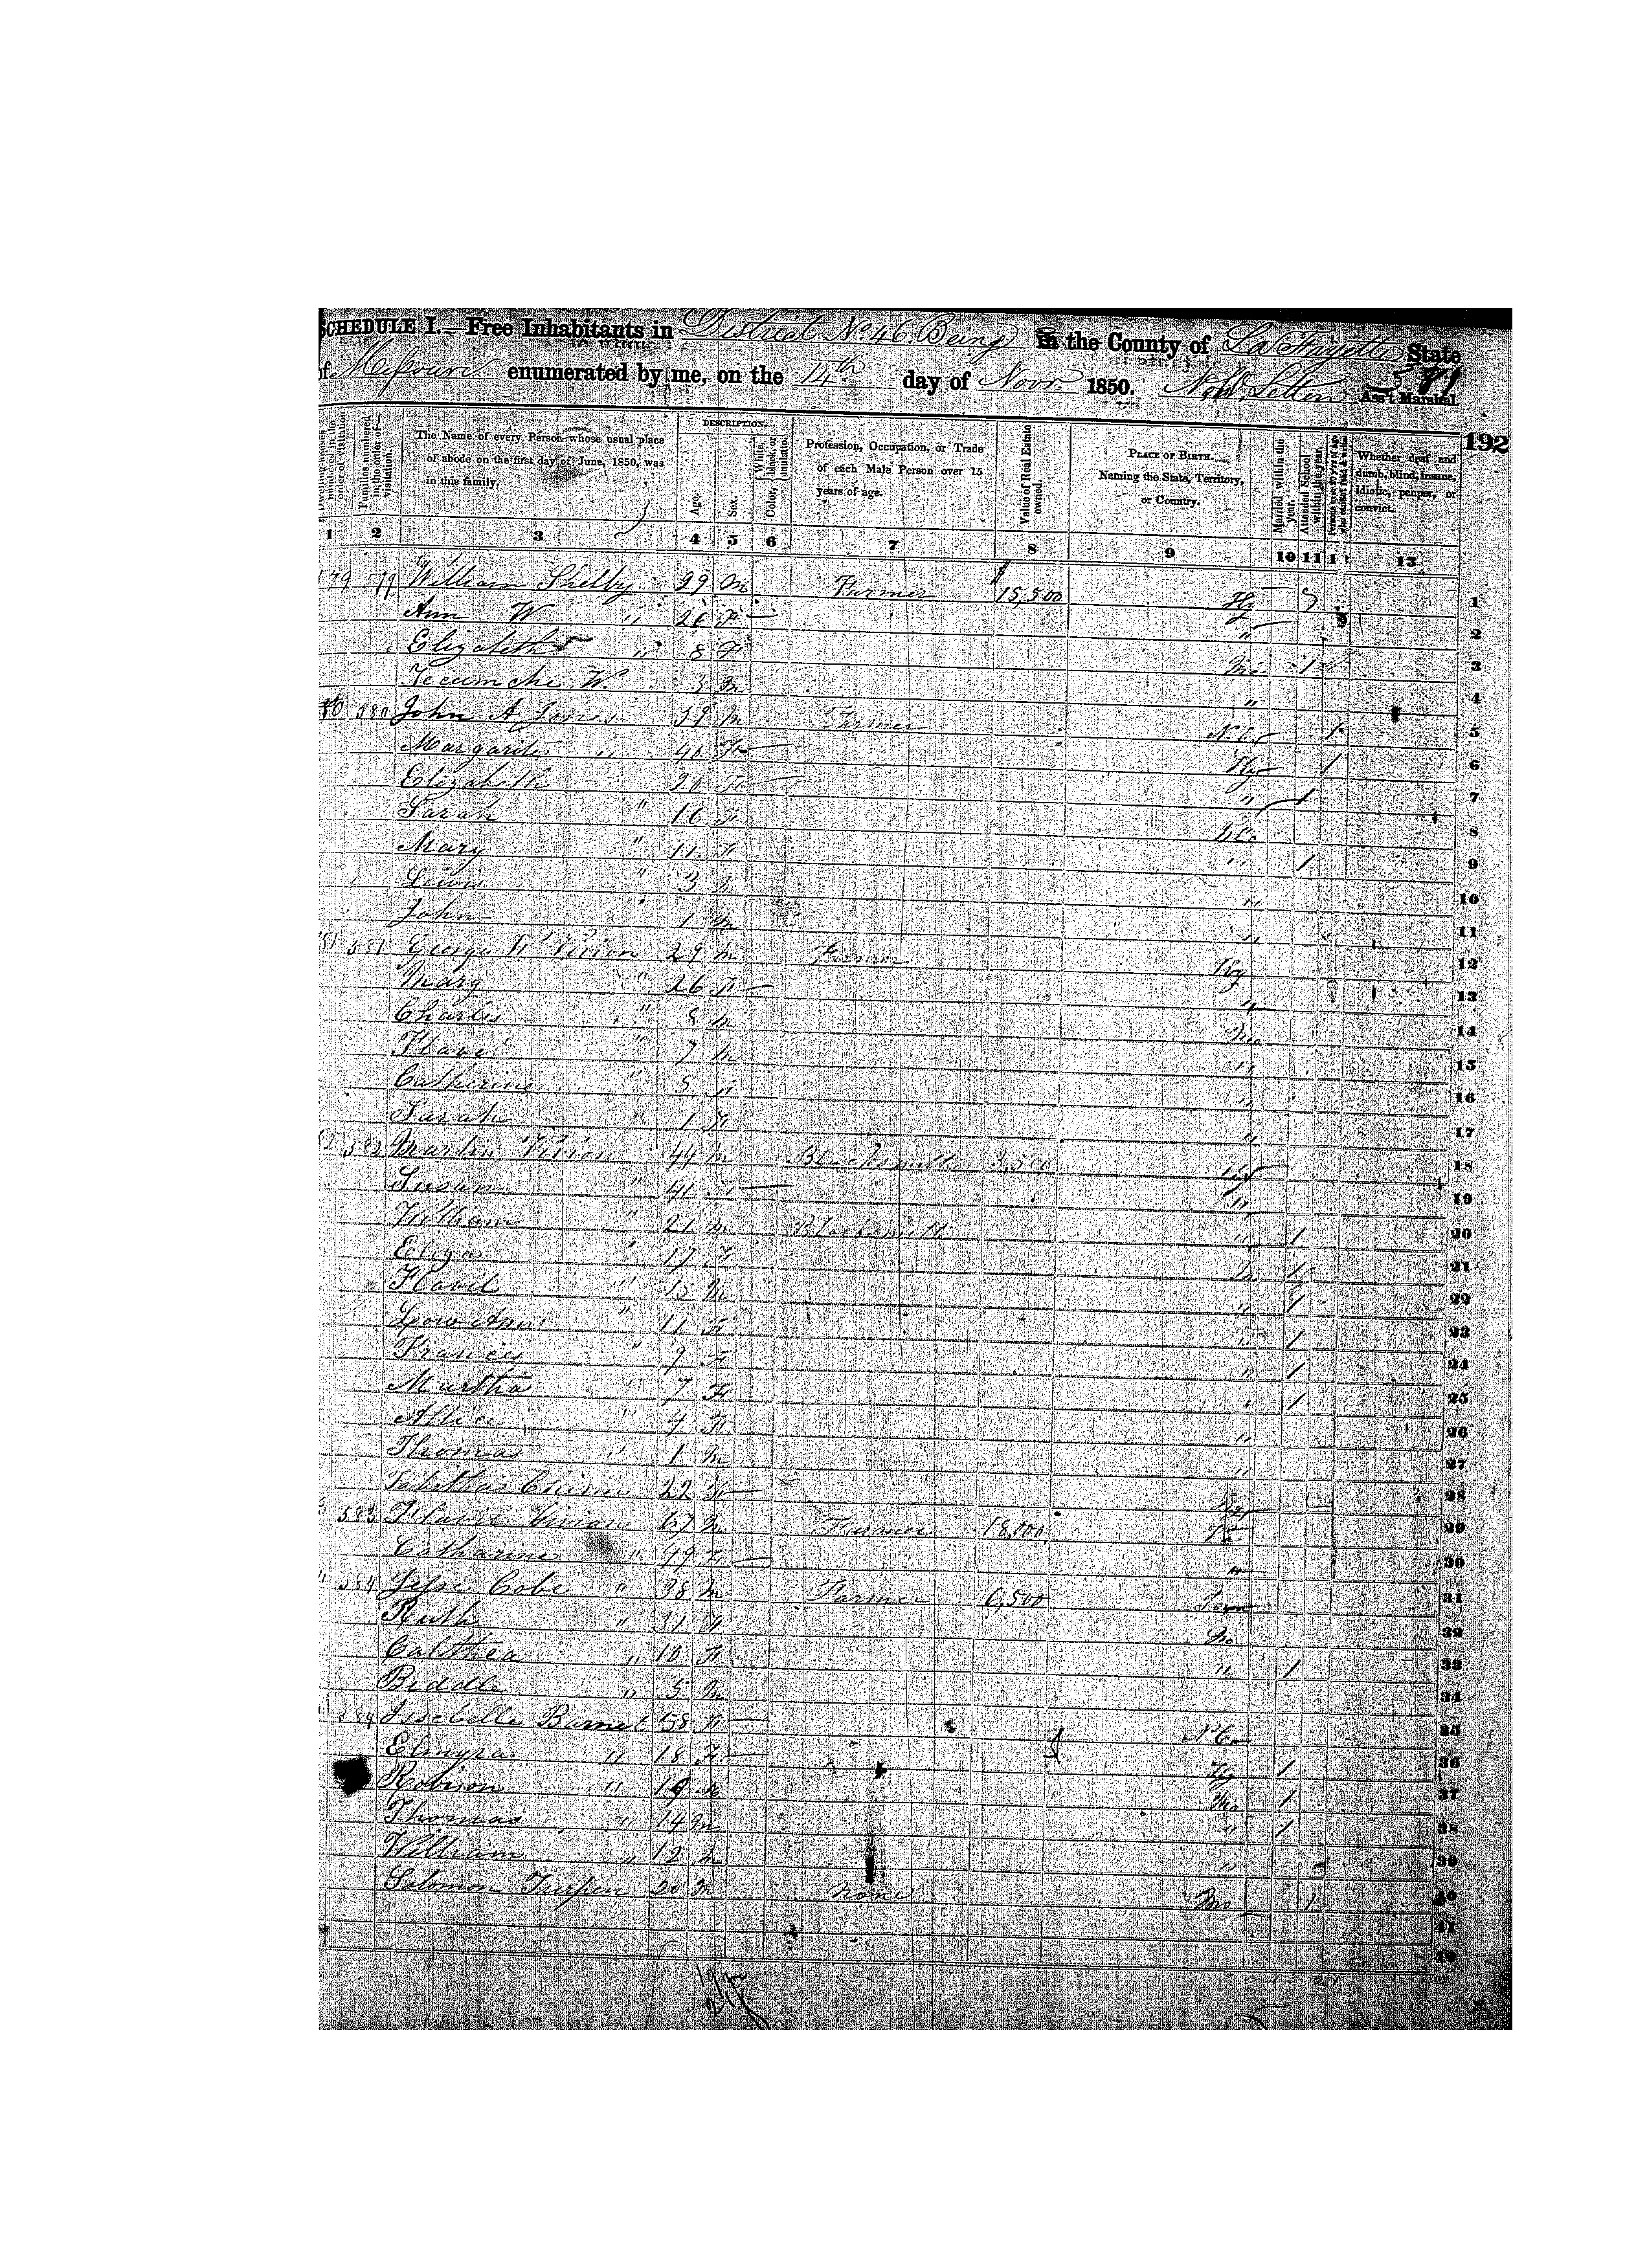 SCHEDULE I.—Free Inhabitants in District No. 46 Being in the County of LaFayette State
of Missouri enumerated by me, on the 14th day of Novr 1850. Ass't Marshal.
192
DESCRIPTION.
The Name of every Person whose usual place of abode on the first day of June, 1850, was in this family.
Age.
Sex.
Color, White, black, or mulatto.
Profession, Occupation, or Trade of each Male Person over 15 years of age.
Value of Real Estate owned.
PLACE OF BIRTH. Naming the State, Territory, or Country.
Married within the year.
Attended School within the year.
Whether deaf and dumb, blind, insane, idiotic, pauper, or convict.
1 2 3 4 5 6 7 8 9 10 11 13
William Shelby 29 M Farmer 15,500 Ky 1
Ann W " 26 F " 2
Elizabeth " 8 F Mo 1 3
Tecumche W. 3 M " 4
580 John A Jones 39 M Farmer 5
Margarite " 40 F Ky 1 6
Elizabeth 20 F " 1 7
Sarah " 16 F 8
Mary " 11 F " 1 9
Lewis " 3 M " 10
John " 1 M " 11
581 George W Vivion 29 M Farmer Ky 12
Mary " 26 F " 13
Charles " 8 M Mo 14
Flavel " 7 M " 15
Catherine " 5 F " 16
Sarah " 1 F " 17
582 Martin Vivion 44 M Blacksmith 3,500 Ky 18
Susan " 41 F " 19
William " 21 M Blacksmith " 1 20
Eliza " 17 F 1 21
Flavel " 15 M " 1 22
" 11 F " 1 23
Frances " 9 F " 1 24
Martha " 7 F " 1 25
Allice " 4 F " 26
Thomas " 1 M " 27
Tabitha 22 F Ky 28
583 67 M Farmer 18,000 29
Catharine " 49 F " 30
584 Jesse Cobe " 38 M Farmer 6,500 Tenn 31
Ruth " 31 F Mo 32
Calthea " 10 F " 1 33
Biddle " 5 M 34
584 Issebelle Barnet 58 F N C 35
Elmyra " 18 F Ky 1 36
Robison " 16 M Mo 1 37
Thomas " 14 M " 1 38
William " 12 M " 39
Solomon Turpen 20 M none Mo 1 40
41